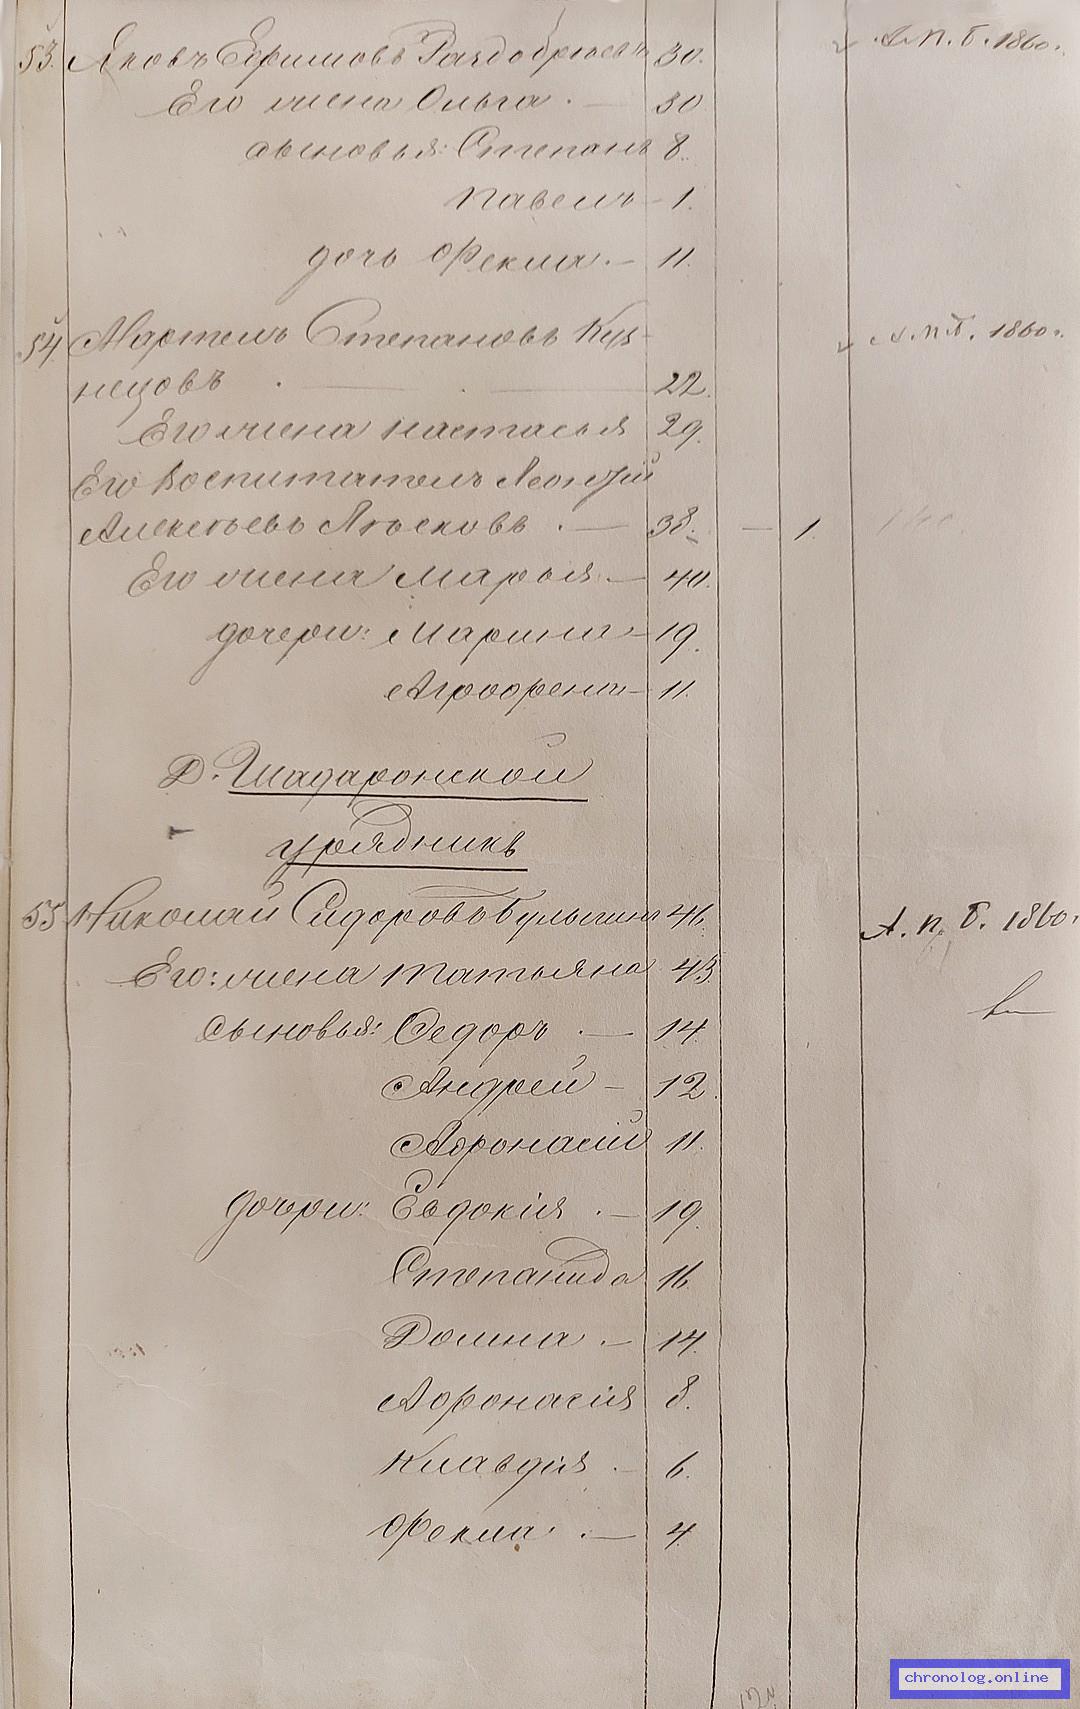 53. Яковъ Ефимовъ Раздобреевъ 30. А. П. Б. 1860 г.
Его жена Ольга. — 30
сыновья: Степанъ 8.
Павелъ — 1.
дочь Фекла. — 11.
54. Степановъ Куз- А. П. Б. 1860 г.
нецовъ . — . — 22.
Его жена Настасья 29.
Его Воспитатель Леонтій
Алексѣевъ — 38. — 1.
Его жена Марья. — 40.
дочери: Марина — 19.
Агрофена — 11.
Д. Шадаронской
урядникъ
55 Николай Сидоровъ Булыгинъ 46. А. П. Б. 1860 г.
Его: жена Татьяна 43.
Сыновья: Федоръ . — 14.
Андрей — 12.
Афонасій 11.
Дочери: Евдокія . — 19.
Степанида 16.
Домна . — 14.
Афонасія 8.
Клавдія . — 6.
Фекла . — 4.
chronolog.online